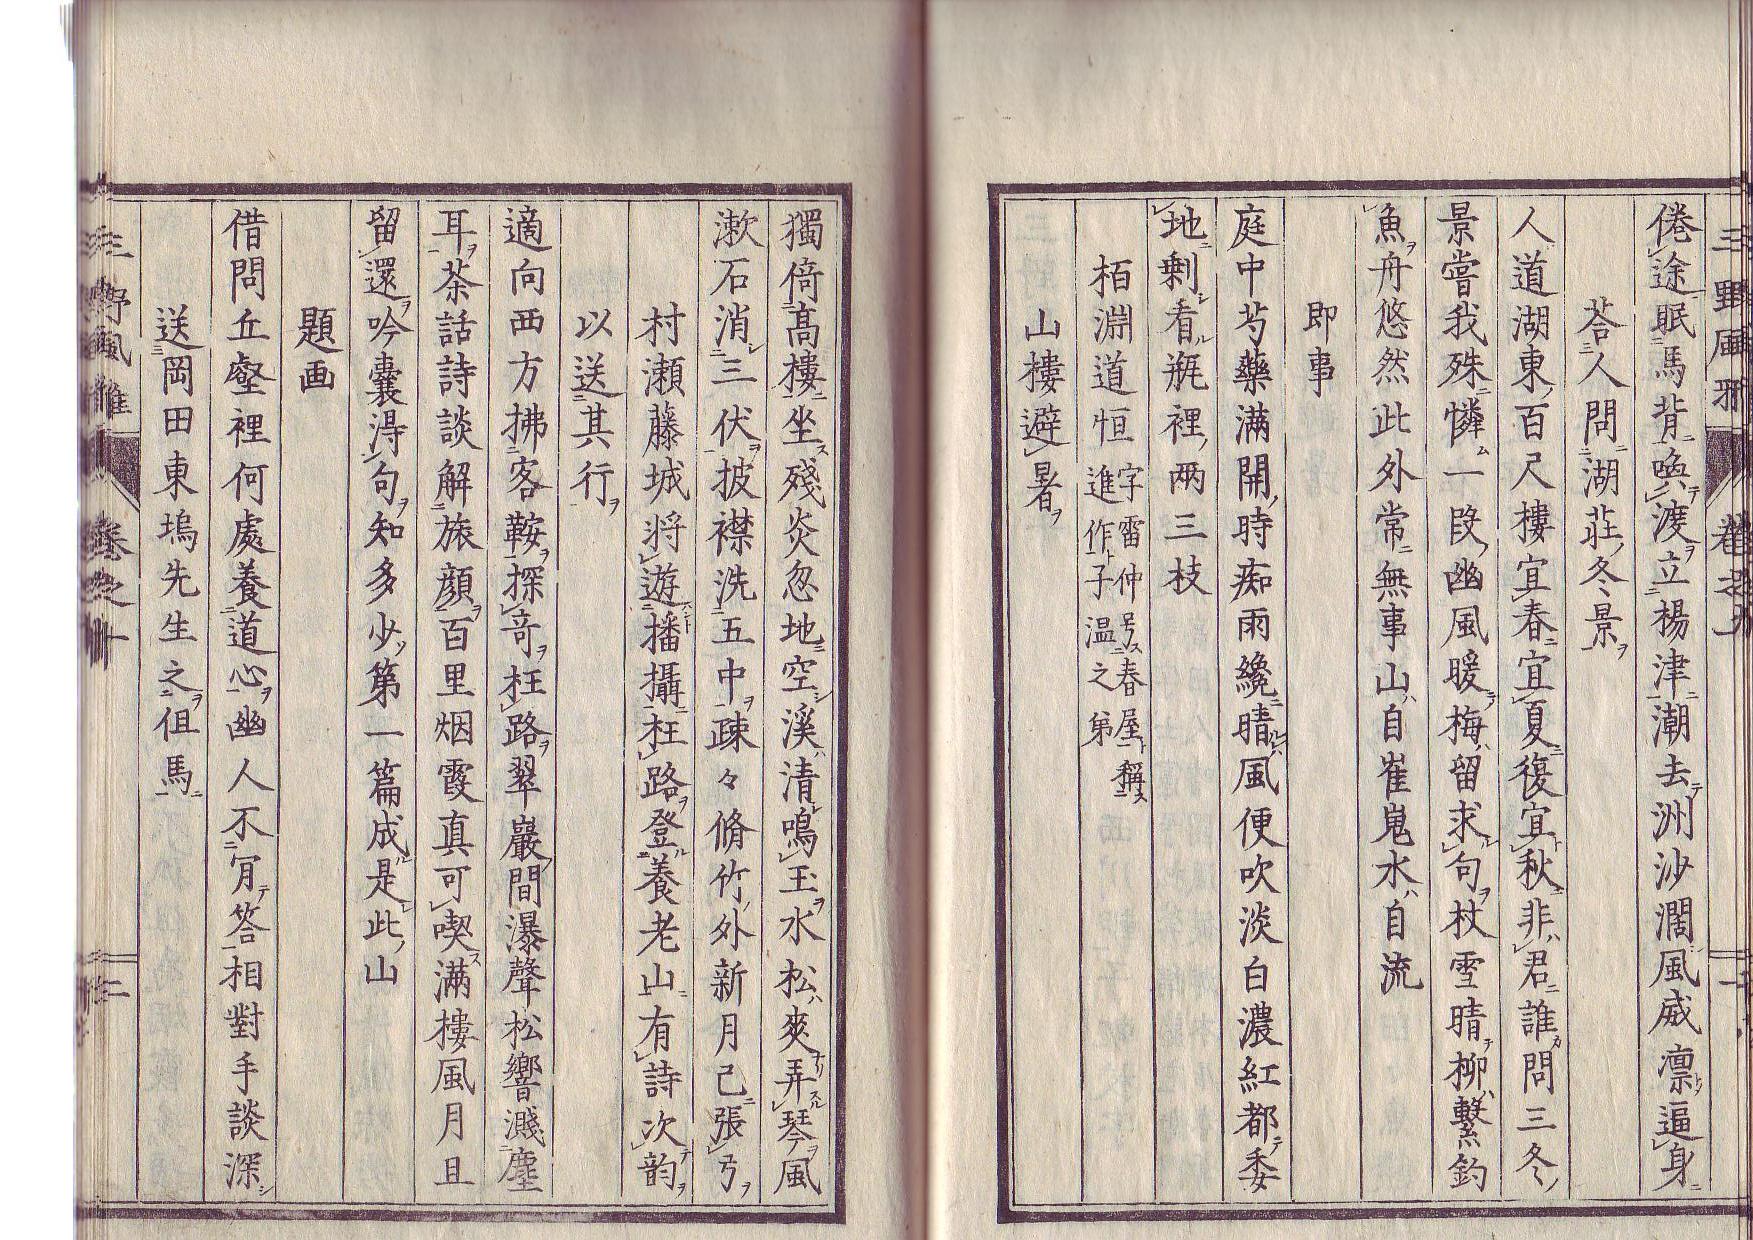 倦途眠馬背喚渡立楊津潮去洲沙濶風威凛逼身
荅人問湖莊冬景
人道湖東百尺樓宜春宜夏復宜秋非君誰問三冬
景嘗我殊憐一段幽風暖梅留求句杖雪晴柳繫釣
魚舟悠然此外常無事山自崔嵬水自流
即事
庭中芍藥满開時痴雨纔晴風便吹淡白濃紅都委
地剩看瓶裡兩三枝
栢淵道恒
字雷仲号春屋稱
進作子温之第
山樓避暑
獨倚髙樓坐殘炎忽地空溪清鳴玉水松爽弄琴風
漱石消三伏披襟洗五中疎々脩竹外新月已張弓
村瀬藤城将遊播攝枉路登養老山有詩次韵
以送其行
適向西方拂客鞍探奇枉路翠巖間瀑聲松響濺塵
耳茶話詩談解旅顔百里烟霞真可喫满樓風月且
留還吟嚢淂句知多少第一篇成是此山
題画
借問丘壑裡何處養道心幽人不肎答相對手談深
送岡田東塢先生之伹馬